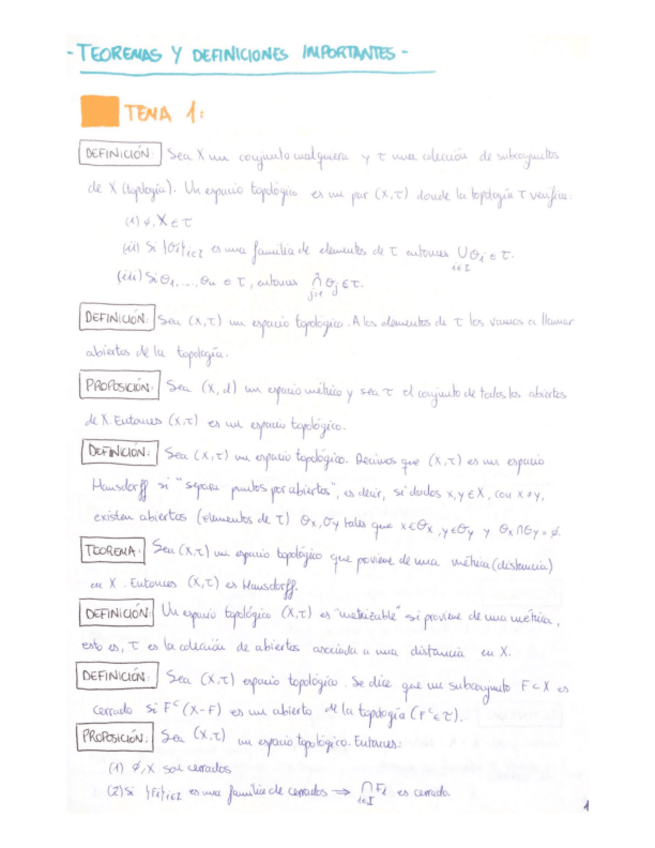 - TEOREMAS Y DEFINICIONES IMPORTANTES -
TEMA 1:
DEFINICIÓN: Sea X un conjunto cualquiera y τ una colección de subconjuntos
de X (toplogía). Un espacio topológico es un par (X,τ) donde la topología τ verifica:
(i) ∅, X ∈ τ
(ii) Si {Oi}i∈I es una familia de elementos de τ entonces ∪i∈I Oi ∈ τ.
(iii) Si O1, ..., On ∈ τ, entonces ∩j=1n Oj ∈ τ.
DEFINICIÓN: Sea (X,τ) un espacio topológico. A los elementos de τ los vamos a llamar
abiertos de la topología.
PROPOSICIÓN: Sea (X,d) un espacio métrico y sea τ el conjunto de todos los abiertos
de X. Entonces (X,τ) es un espacio topológico.
DEFINICIÓN: Sea (X,τ) un espacio topológico. Decimos que (X,τ) es un espacio
Hausdorff si "separa puntos por abiertos", es decir, si dados x,y ∈ X, con x≠y,
existen abiertos (elementos de τ) Ox, Oy tales que x∈Ox, y∈Oy y Ox∩Oy=∅.
TEOREMA: Sea (X,τ) un espacio topológico que proviene de una métrica (distancia)
en X. Entonces (X,τ) es Hausdorff.
DEFINICIÓN: Un espacio topológico (X,τ) es "metrizable" si proviene de una métrica,
esto es, τ es la colección de abiertos asociada a una distancia en X.
DEFINICIÓN: Sea (X,τ) espacio topológico. Se dice que un subconjunto F⊂X es
cerrado si Fᶜ (X-F) es un abierto de la topología (Fᶜ∈τ).
PROPOSICIÓN: Sea (X,τ) un espacio topológico. Entonces:
(1) ∅, X son cerrados
(2) Si {Fi}i∈I es una familia de cerrados ⟹ ∩i∈I Fi es cerrado.
1